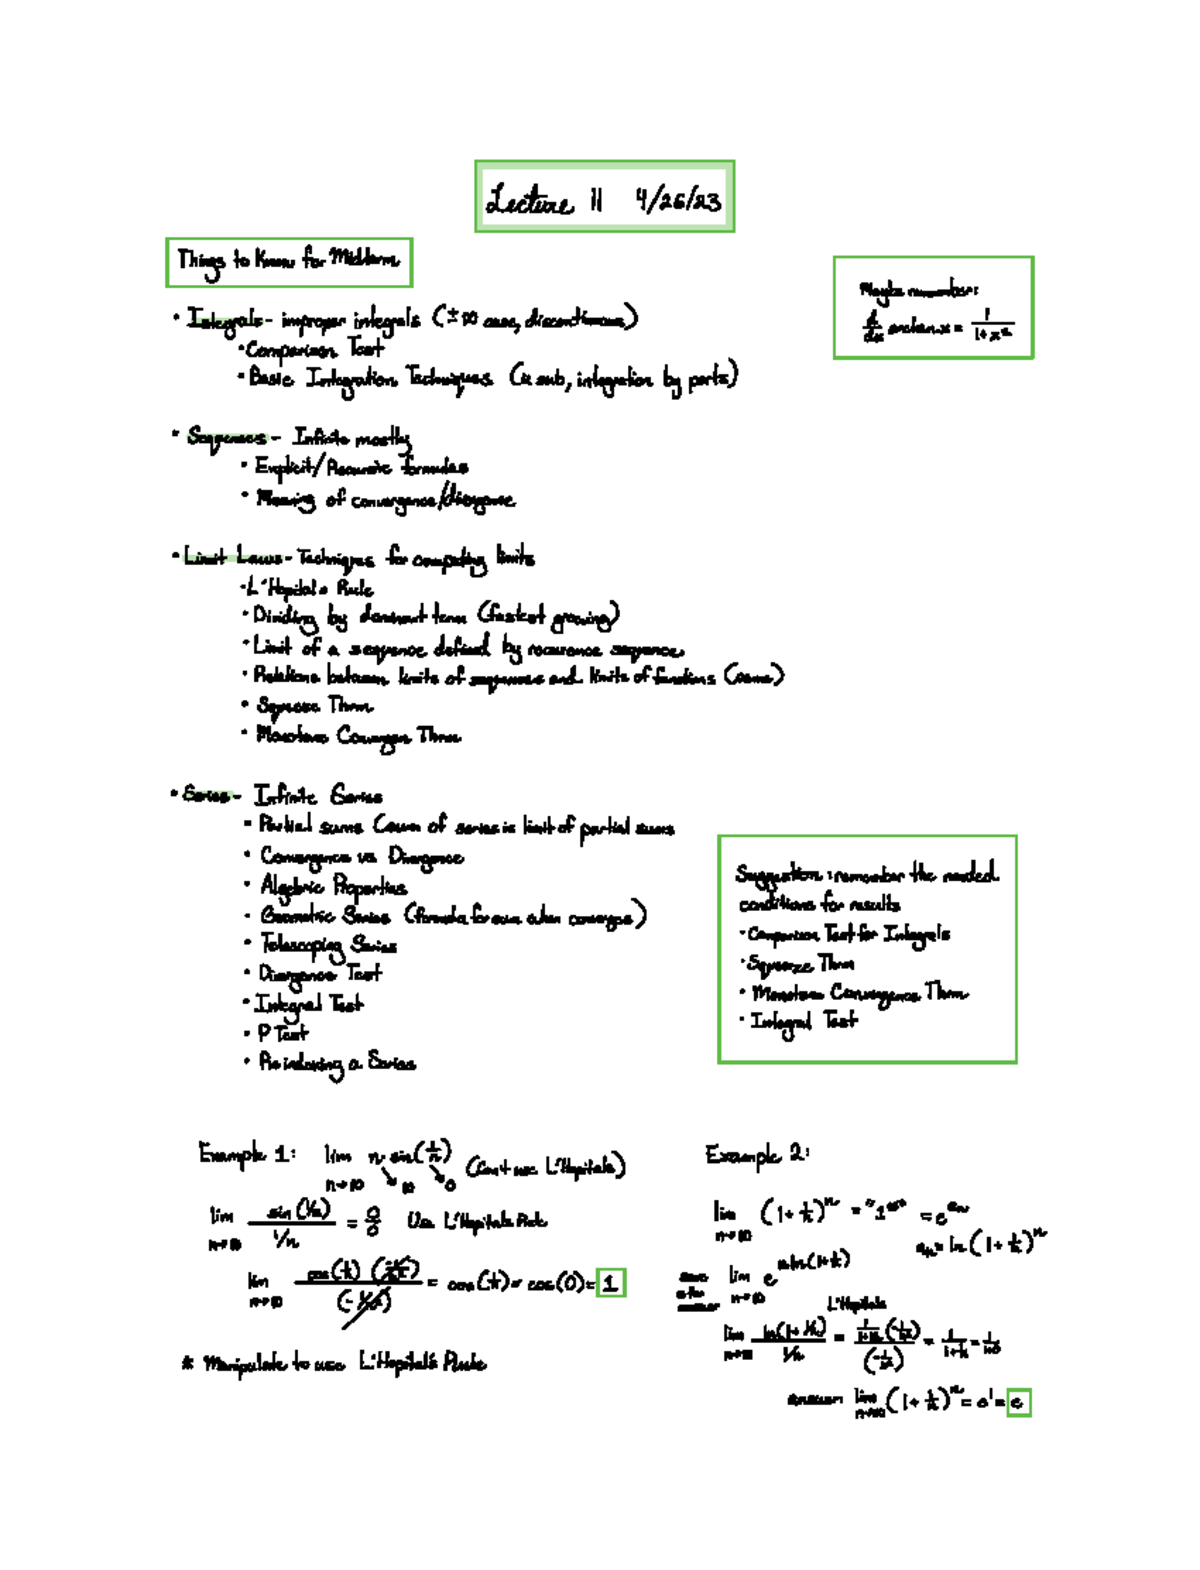 Lecture 11 4/26/23
Things to Know for Midterm
Maybe remember:
d/dx arctan x = 1/(1+x²)
• Integrals - improper integrals (±∞ case, discontinuous)
• Comparison Test
• Basic Integration Techniques (u sub, integration by parts)
• Sequences - Infinite mostly
• Explicit/Recursive formulas
• Meaning of convergence/divergence
• Limit Laws - Techniques for computing limits
• L'Hopital's Rule
• Dividing by dominant term (fastest growing)
• Limit of a sequence defined by recurrence sequence
• Relations between limits of sequences and limits of functions (same)
• Squeeze Thrm
• Monotone Convergen Thrm
• Series - Infinite Series
• Partial sums (sum of series is limit of partial sums
• Convergence vs Divergence
• Algebraic Properties
• Geometric Series (formula for sum when converges)
• Telescoping Series
• Divergence Test
• Integral Test
• P Test
• Reindexing a Series
Suggestion: remember the needed
conditions for results
• Comparison Test for Integrals
• Squeeze Thrm
• Monotone Convergence Thrm
• Integral Test
Example 1: lim n→∞ n sin(1/n) (Can't use L'Hopitals)
∞ 0
lim n→∞ sin(1/n) / 1/n = 0/0 Use L'Hopitals Rule
lim n→∞ cos(1/n)(-1/n²) / (-1/n²) = cos(1/n) = cos(0) = 1
* Manipulate to use L'Hopital's Rule
Example 2:
lim n→∞ (1+1/n)ⁿ = "1^∞" = e^aₙ
aₙ = ln(1+1/n)ⁿ
lim n→∞ e^(n ln(1+1/n))
L'Hopitals
lim n→∞ ln(1+1/n) / 1/n = 1/(1+1/n) (-1/n²) / (-1/n²) = 1/(1+1/n) = 1/(1+0)
answer: lim n→∞ (1+1/n)ⁿ = e¹ = e